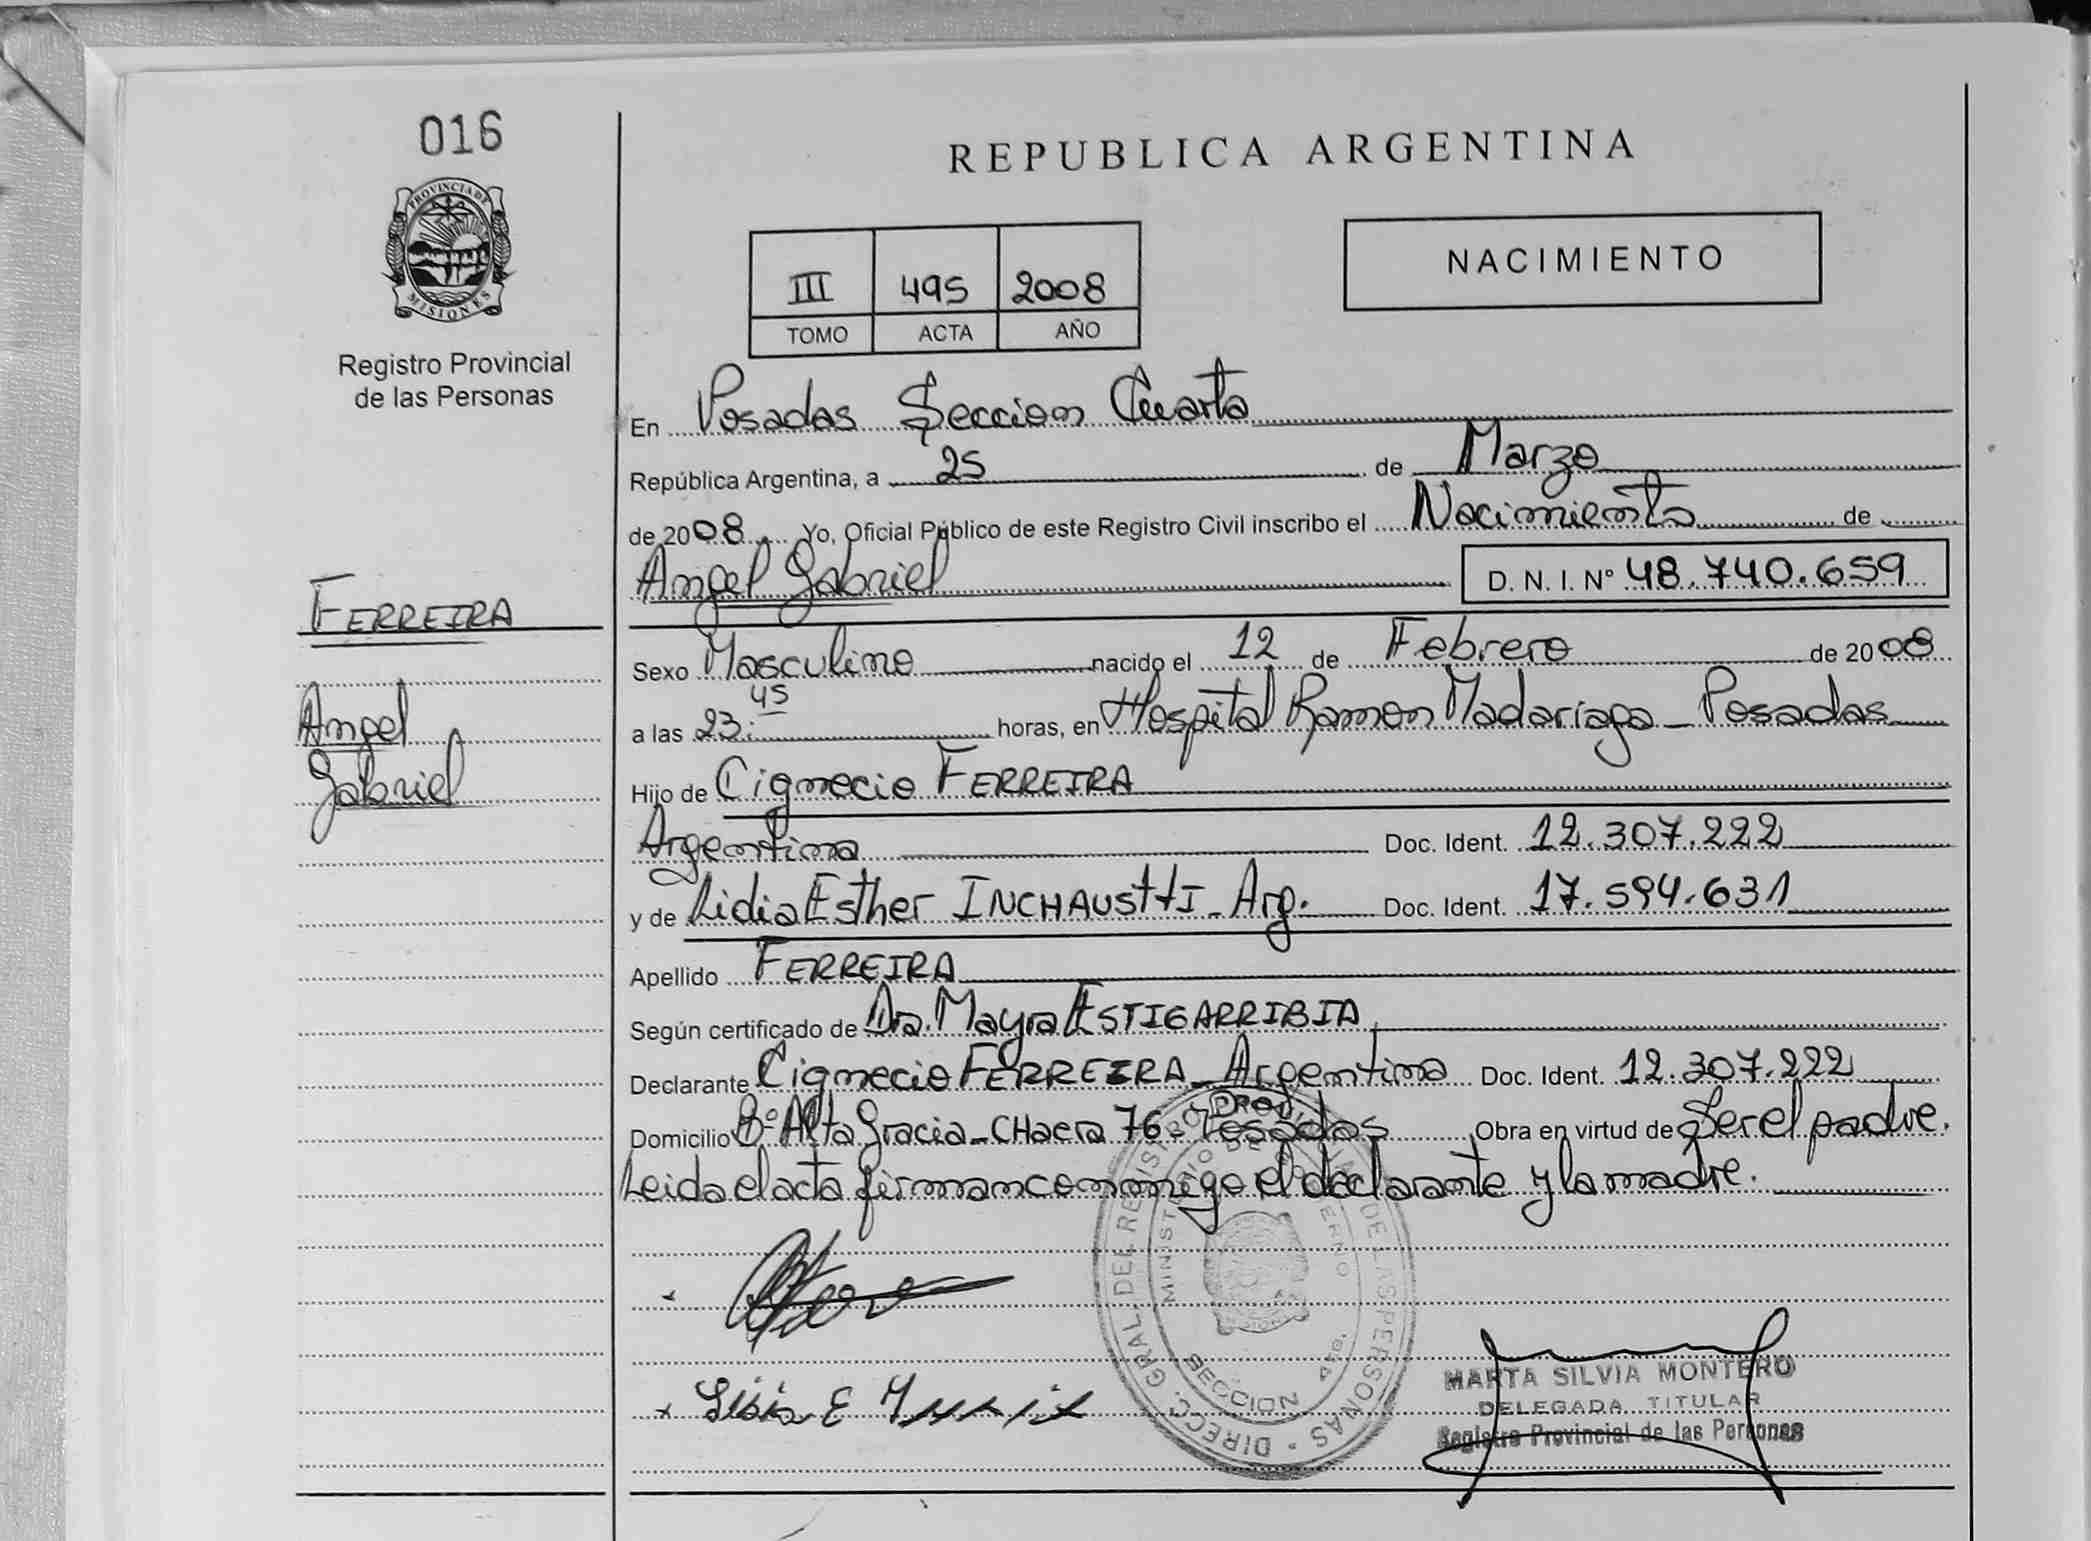 016
PROVINCIA DE
MISIONES
Registro Provincial
de las Personas
REPUBLICA ARGENTINA
NACIMIENTO
III 495 2008
TOMO ACTA AÑO
En Posadas Seccion Cuarta
República Argentina, a 25 de Marzo
de 2008 Yo, Oficial Público de este Registro Civil inscribo el Nacimiento de
Angel Gabriel D. N. I. Nº 48.740.659
FERREIRA
Sexo Masculino nacido el 12 de Febrero de 2008
Angel
Gabriel
a las 23:45 horas, en Hospital Ramon Madariaga - Posadas
Hijo de Cignecio FERREIRA
Argentina Doc. Ident. 12.307.222
y de Lidia Esther INCHAUSTTI - Arg. Doc. Ident. 17.594.631
Apellido FERREIRA
Según certificado de Dra. Mayra ESTIGARRIBIA
Declarante Cignecio FERREIRA - Argentino Doc. Ident. 12.307.222
Domicilio Bº Alta Gracia - CHacra 76 - Posadas Obra en virtud de Ser el padre.
Leida el acta firman conmigo el declarante y la madre.
DIRECC. GRAL. DEL REGISTRO PROVINCIAL DE LAS PERSONAS
MINISTERIO DE GOBIERNO
SECCION 4ta.
MARTA SILVIA MONTERO
DELEGADA TITULAR
Registro Provincial de las Personas